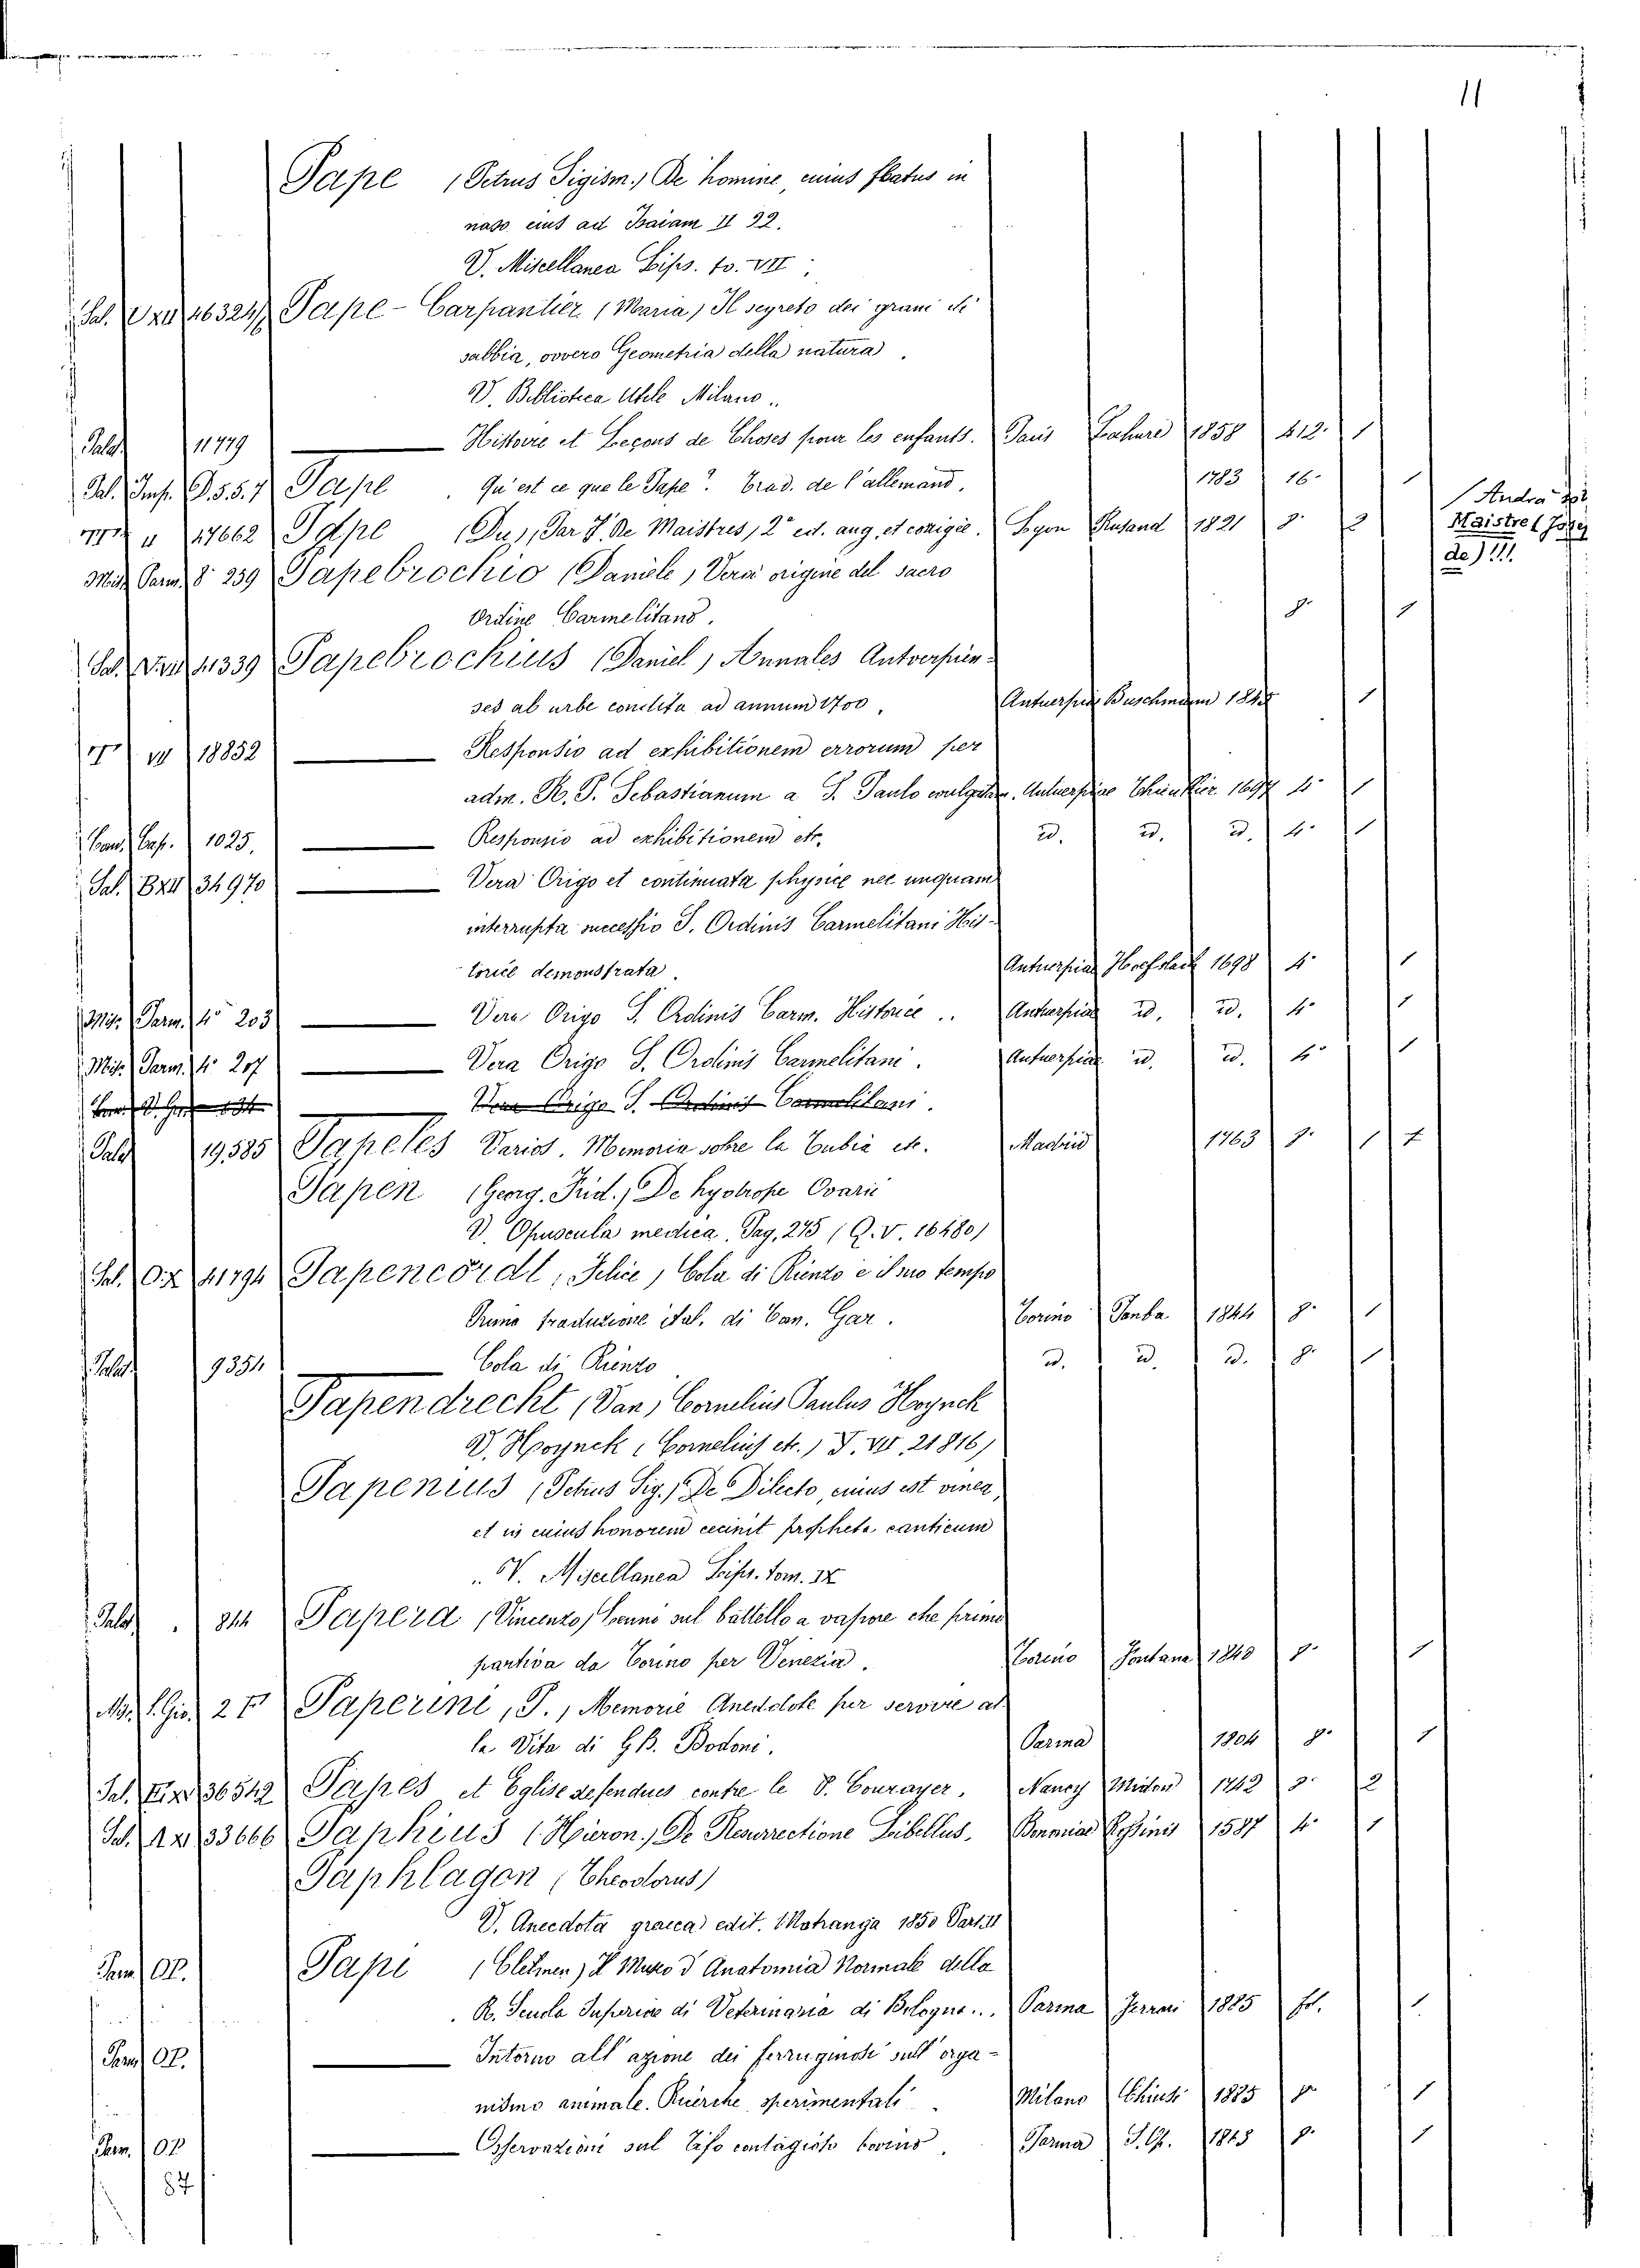 11
Pape (Petrus Sigism.) De homine, cuius flatus in
naso eius ad Isaiam II 22.
V. Miscellanea Lips. to. VII.
Sal. 26324 Pape-Carpantier (Maria) Il segreto dei grani di
sabbia, ovvero Geometria della natura.
V. Biblioteca Utile Milano.
Palat. 11779 Histoire et Leçons de Choses pour les enfants. Paris Lahure 1858 12. 1
Sal. Imp. 5.5.7 Pape. Qu'est ce que le Pape? Trad. de l'allemand. 1783 16. 1
17662 Pape (Du), Par J. De Maistres, 2e ed. aug. et corrigée. Lyon Rusand 1821 8. 2
Andra poi Maistre (Josef de) !!!
Mis. Parm. 8° 239 Papebrochio (Daniele) Vera origine del sacro
Ordine Carmelitano. 8. 1
Sal. 11339 Papebrochius (Daniel) Annales Antverpien-
ses ab urbe condita ad annum 1700. Antuerpiae Buschmann 1845 1
18852 Responsio ad exhibitionem errorum per
adm. R. P. Sebastianum a S. Paulo evulgatam. Antuerpiae Thieullier 1697 4. 1
Band. Cap. 1025. Responsio ad exhibitionem etc. id. id. id. 4. 1
Sal. 34970 Vera Origo et continuata physice nec unquam
interrupta successio S. Ordinis Carmelitani His-
torice demonstrata. Antuerpiae 1698 4. 1
Mis. Parm. 4° 203 Vera Origo S. Ordinis Carm. Historice .. Antuerpiae id. id. 4. 1
Mis. Parm. 4° 207 Vera Origo S. Ordinis Carmelitani. Antuerpiae id. id. 4. 1
Vera Origo S. Ordinis Carmelitani.
Palat 19,585 Papeles Varios. Memoria sobre la Cubia etc. Madrid 1763 8. 1
Papen (Georg. Frid.) De hydrope Ovarii
V. Opuscula medica. Pag. 275 (Q. V. 16480)
Sal. 41794 Papencòrdt, Felice, Cola di Rienzo e il suo tempo
Prima traduzione ital. di Can. Gar. Torino Pomba 1844 8. 1
Palat. 9354 Cola di Rienzo id. id. id. 8. 1
Papendrecht (Van) Cornelius Paulus Hoynck
V. Hoynck (Cornelius etc.) 21816)
Papenius (Petrus Sig.) De Dilecto, cuius est vinea,
et in cuius honorem cecinit propheta canticum
V. Miscellanea Lips. tom. IX
Palat. 844 Paperd (Vincenzo) Cenni sul battello a vapore che primo
partiva da Torino per Venezia. Torino Fontana 1843 8. 1
27 Paperini, P., Memorie Aneddote per servire al
la Vita di GB. Bodoni. Parma 1804 8. 1
Sal. 36542 Papes et Eglise defendues contre le P. Courayer. Nancy 1742 8. 2
Sal. 33666 Paphius (Hieron.) De Resurrectione Libellus. Bononiae Rossinis 1587 4. 1
Paphlagon (Theodorus)
V. Anecdota graeca edit. Matranga 1850 Part. II
Parm. OP. Papi (Clemen) Il Museo d'Anatomia Normale della
R. Scuola Superiore di Veterinaria di Bologna... Parma Ferrari 1885 fol. 1
Parm. OP. Intorno all'azione dei ferruginosi sull'orga-
nismo animale. Ricerche sperimentali Milano Chiusi 1885 8. 1
Parm. OP Osservazioni sul Tifo contagioso bovino. Parma 8. 1
87